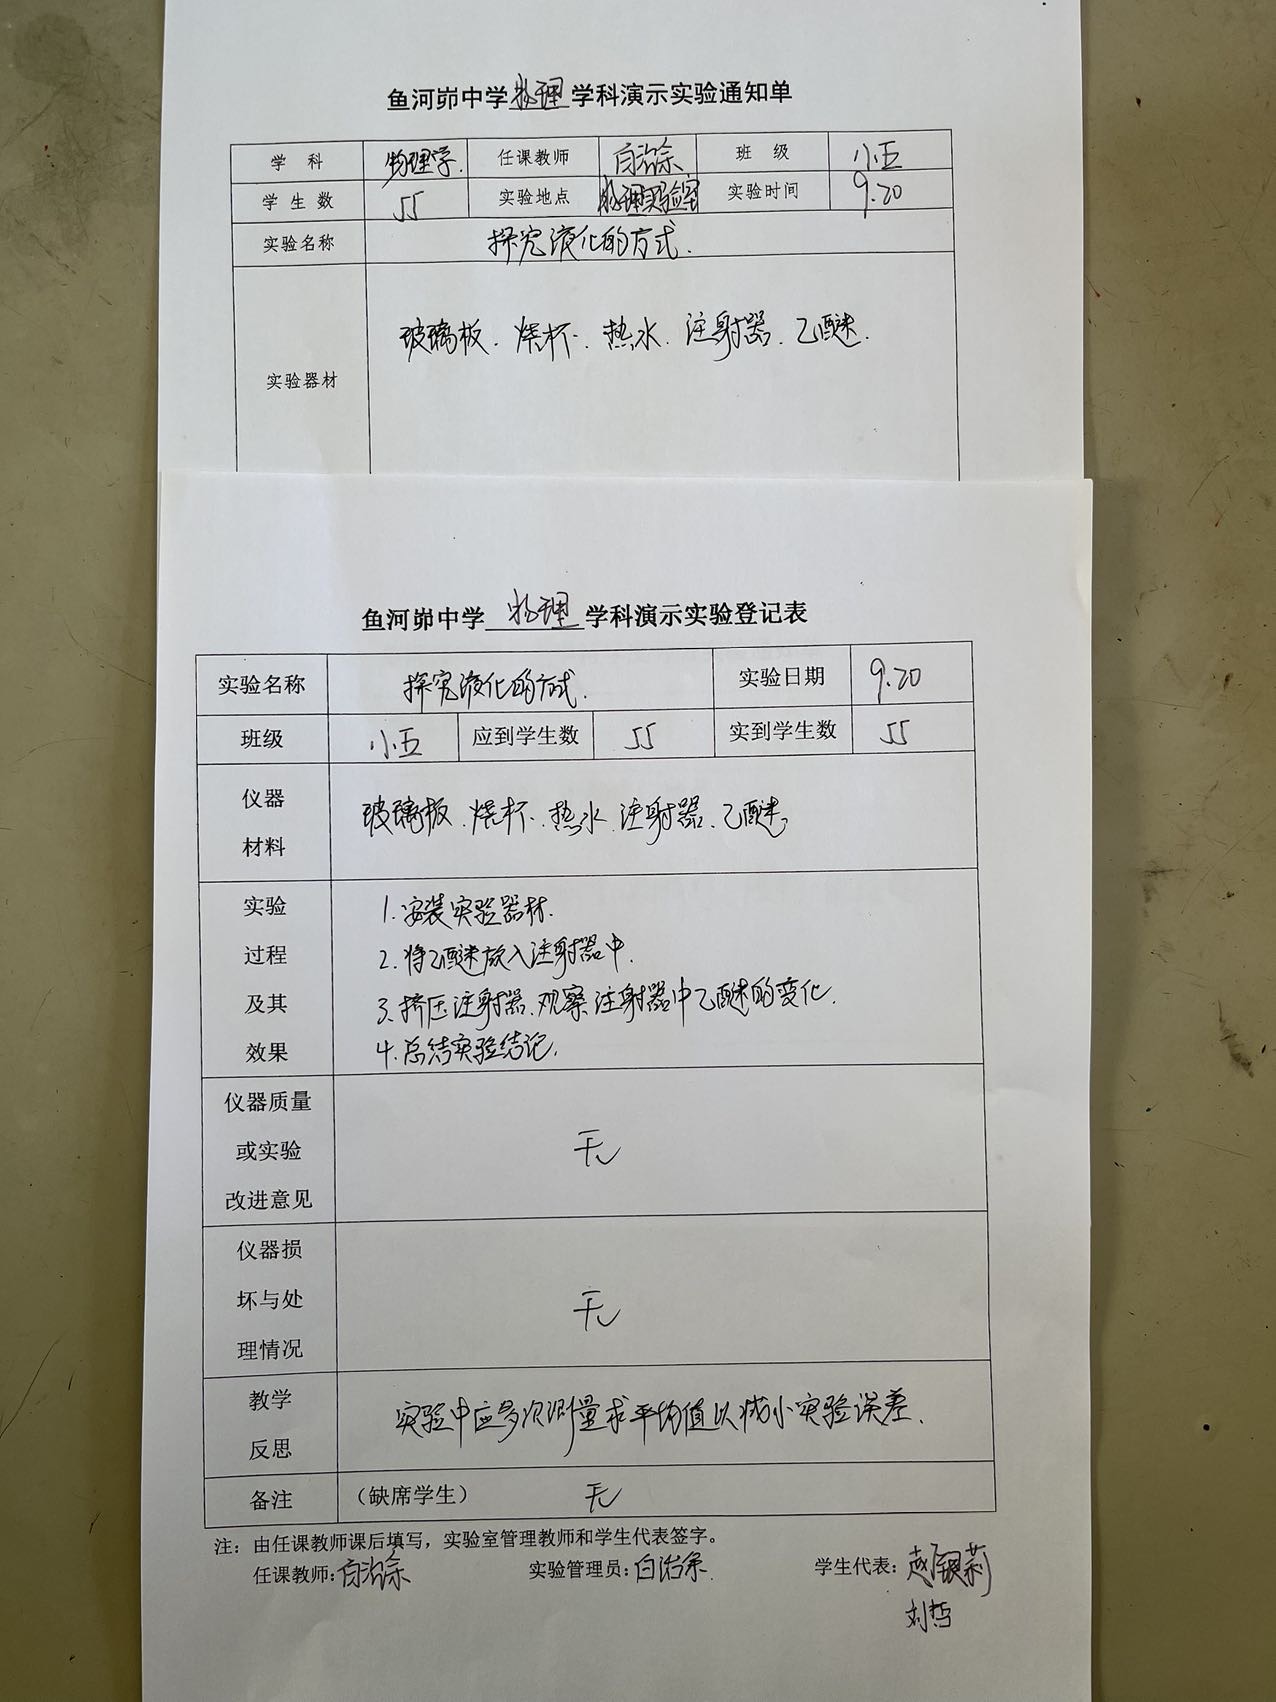 鱼河峁中学物理学科演示实验通知单
学 科 物理学. 任课教师 白治余 班 级 八五
学 生 数 55 实验地点 物理实验室 实验时间 9.20
实验名称 探究液化的方式.
实验器材 玻璃板. 烧杯. 热水. 注射器. 乙醚.
鱼河峁中学 物理 学科演示实验登记表
实验名称 探究液化的方式. 实验日期 9.20
班级 八五 应到学生数 55 实到学生数 55
仪器
材料
玻璃板. 烧杯. 热水. 注射器. 乙醚.
实验
过程
及其
效果
1. 安装实验器材.
2. 将乙醚放入注射器中.
3. 挤压注射器. 观察注射器中乙醚的变化.
4. 总结实验结论.
仪器质量
或实验
改进意见
无
仪器损
坏与处
理情况
无
教学
反思
实验中应多次测量求平均值以减小实验误差.
备注 (缺席学生) 无
注: 由任课教师课后填写, 实验室管理教师和学生代表签字。
任课教师: 白治余 实验管理员: 白治余. 学生代表:
刘哲